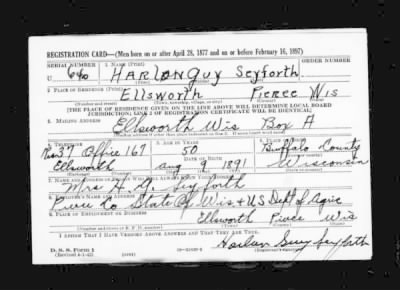 REGISTRATION CARD—(Men born on or after April 28, 1877 and on or before February 16, 1897)
SERIAL NUMBER 1. NAME (Print) ORDER NUMBER
U 640 HARLAN GUY Seyforth
2. PLACE OF RESIDENCE (Print)
Ellsworth Pierce Wis
[THE PLACE OF RESIDENCE GIVEN ON THE LINE ABOVE WILL DETERMINE LOCAL BOARD
JURISDICTION; LINE 2 OF REGISTRATION CERTIFICATE WILL BE IDENTICAL]
3. MAILING ADDRESS
Ellsworth Wis Box A
4. TELEPHONE 5. AGE IN YEARS 6. PLACE OF BIRTH
37 Office 167 50 Buffalo County
DATE OF BIRTH
Ellsworth Aug 9 1891 Wisconsin
7. NAME AND ADDRESS OF
Mrs H. G. Seyforth
8.
Pierce Co State of Wis + U.S. Dept of Agric
9. PLACE OF EMPLOYMENT OR BUSINESS
Ellsworth Pierce Wis
I AFFIRM THAT I HAVE VERIFIED ABOVE ANSWERS AND THAT THEY ARE TRUE.
D. S. S. Form 1
Harlan Guy Seyforth